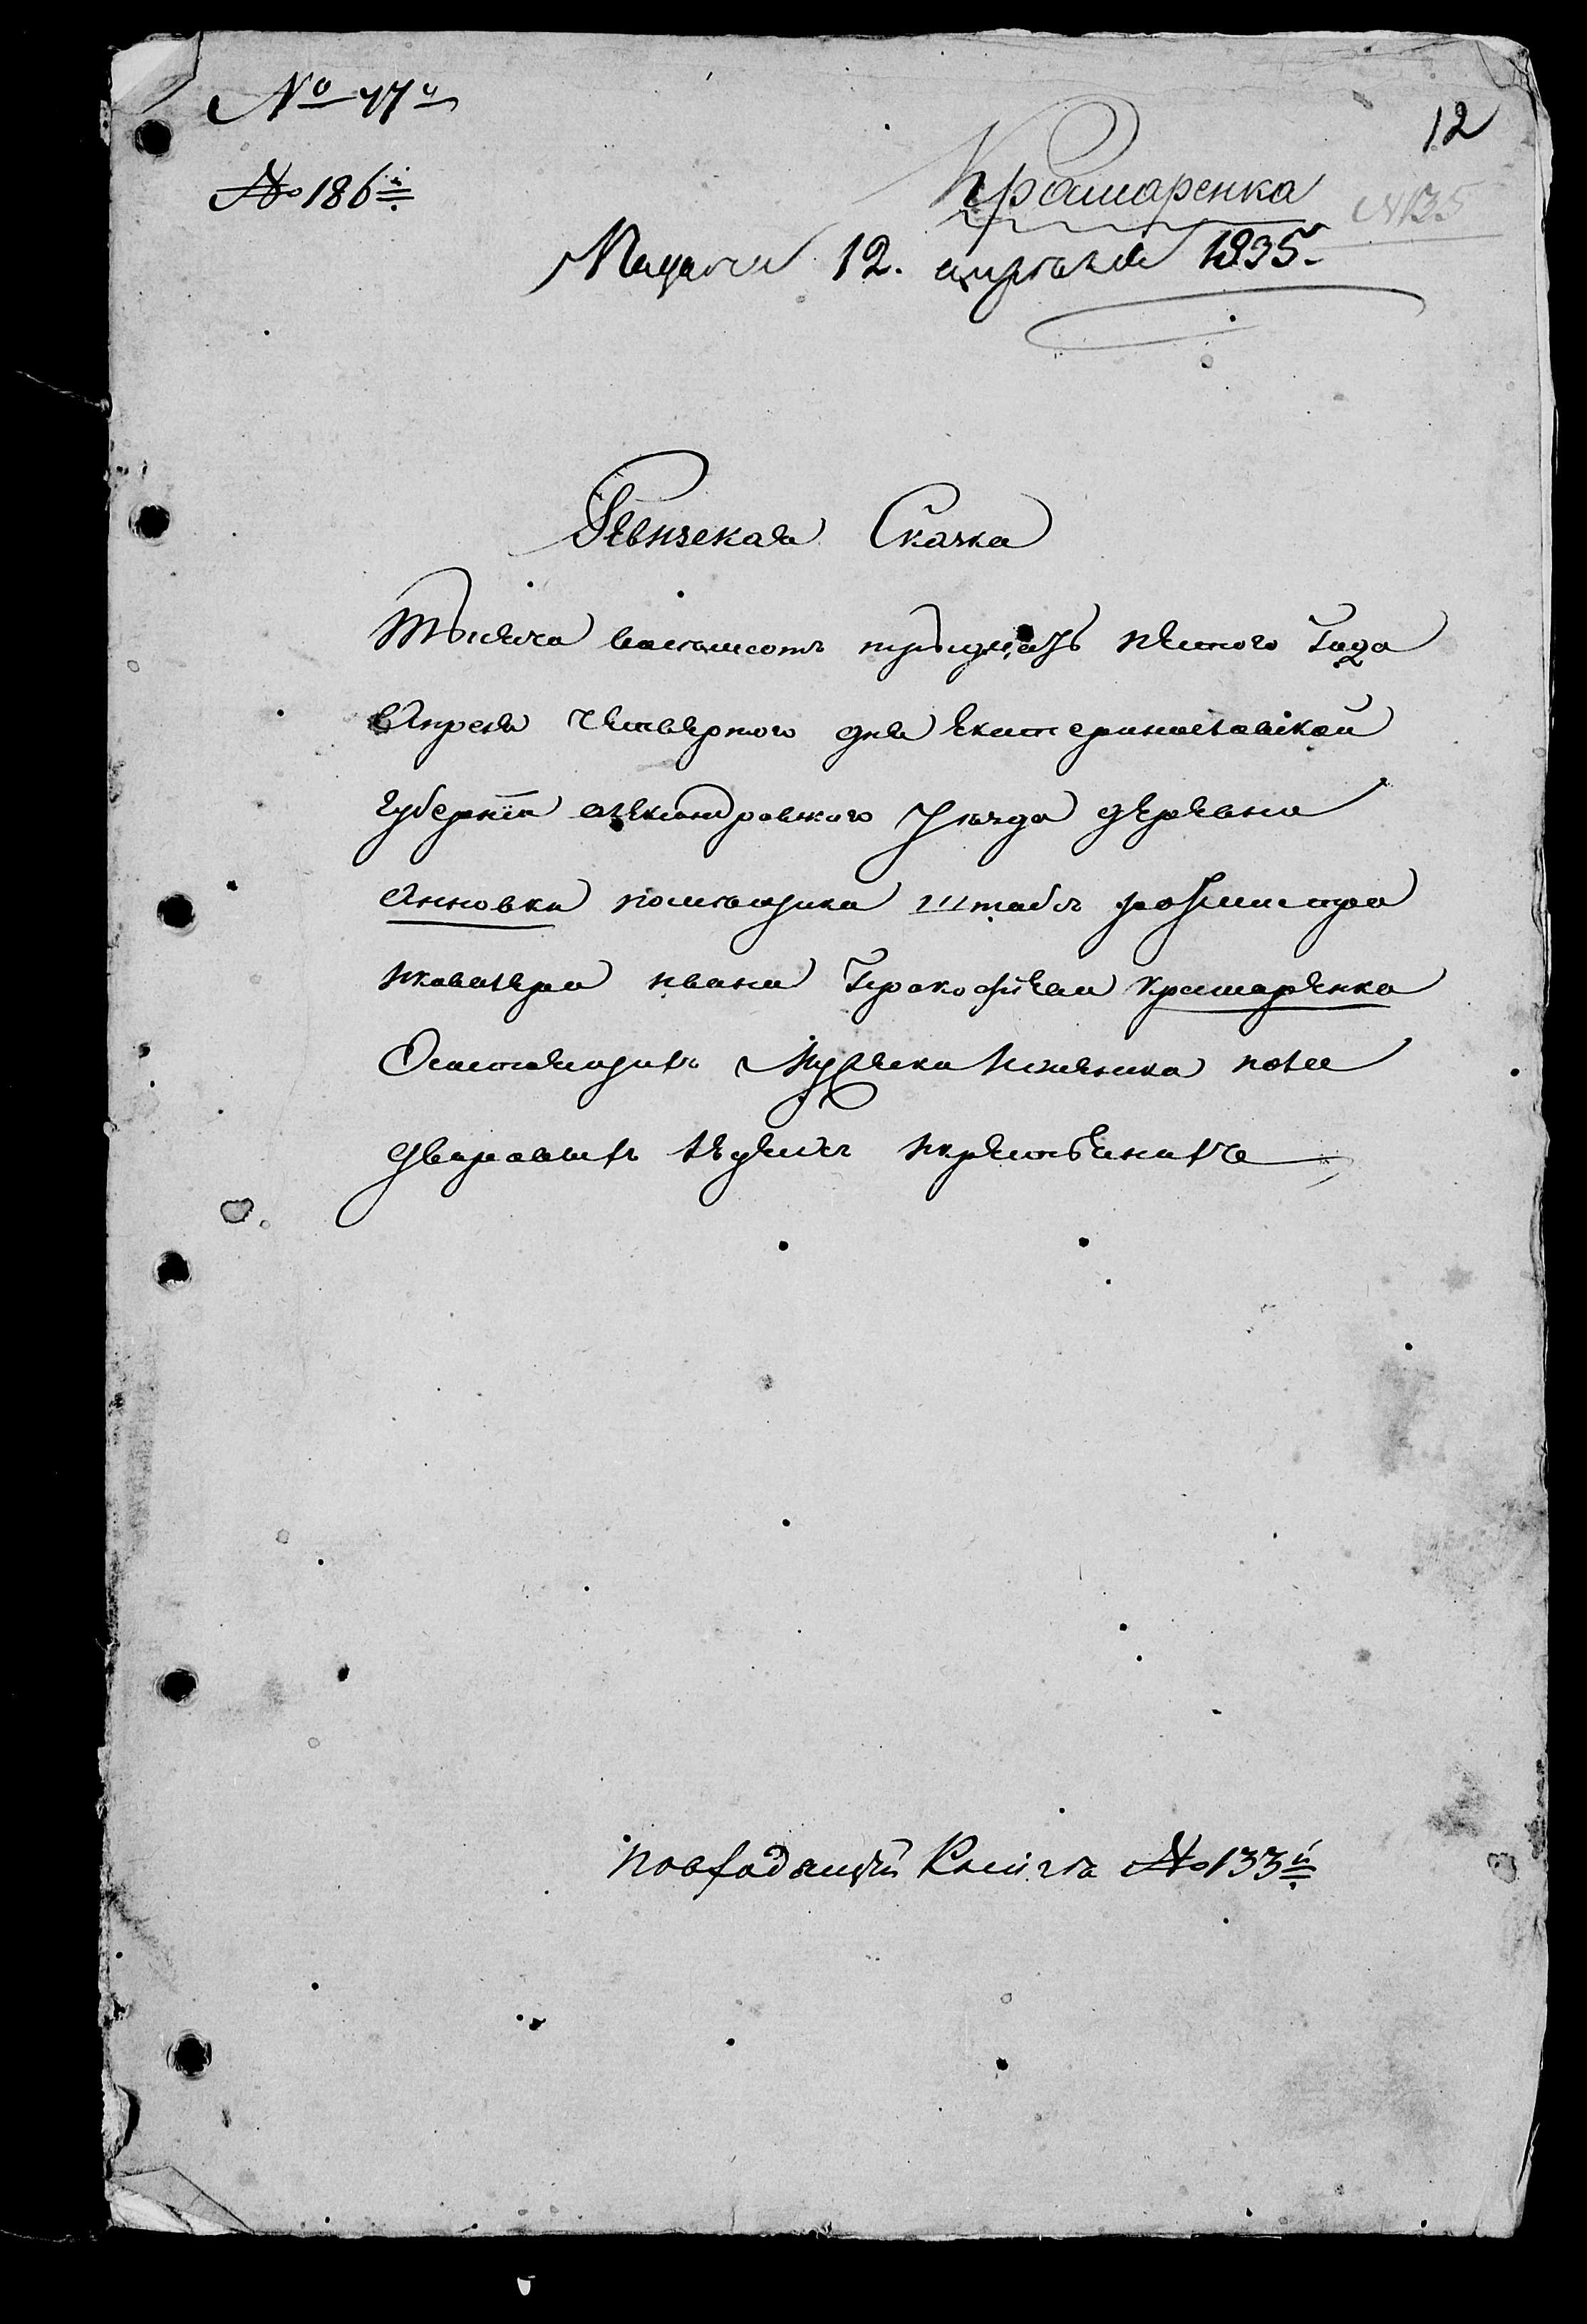 № 47й
12
№ 186й
Крамаренка
№ 135
Подана 12. апреля 1835.
Ревизская Сказка
Тысяча восемсотъ тридцать пятого Года
Апреля четвертого дня Екатеринославской
губернїи александровского Уезда деревни
Анновки помещика штабъ ротмистра
икавалера ивана Прокофиева Крамаренка
Осостоящихъ Мужеска иженска пола
дворовыхъ людяхъ икрестьянахъ
повходящей Книге № 133й